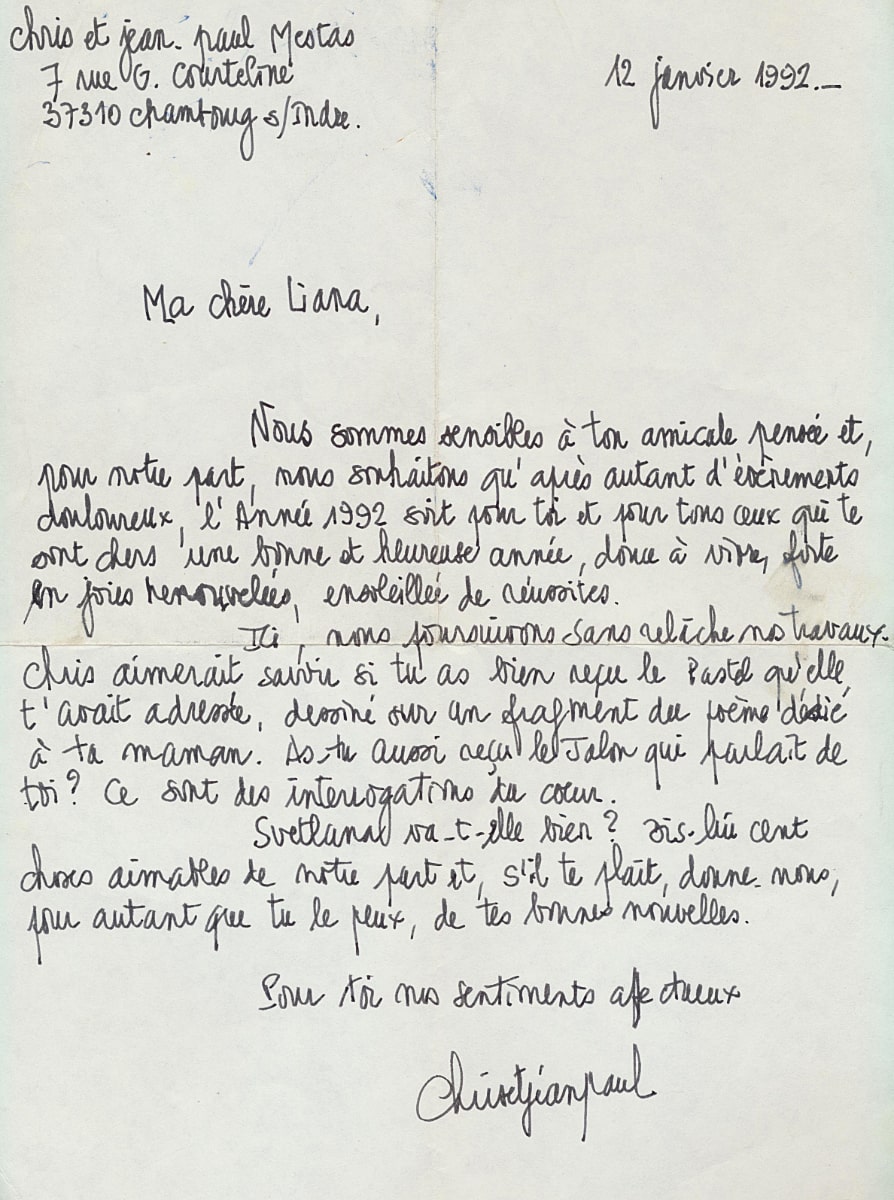 chris et jean-paul Mestas
7 rue G. Courteline
37310 chambourg s/Indre.
12 janvier 1992.-
Ma chère Liana,
Nous sommes sensibles à ton amicale pensée et,
pour notre part, nous souhaitons qu'après autant d'évènements
douloureux, l'Année 1992 soit pour toi et pour tous ceux qui te
sont chers une bonne et heureuse année, douce à vivre, forte
en joies renouvelées, ensoleillée de réussites.
Ici, nous poursuivons sans relâche nos travaux.
Chris aimerait savoir si tu as bien reçu le Pastel qu'elle
t'avait adressée, dessiné sur un fragment du poème dédié
à ta maman. As-tu aussi reçu le Jalon qui parlait de
toi? Ce sont des interrogations du coeur.
Svetlana va-t-elle bien? Dis-lui cent
choses aimables de notre part et, s'il te plaît, donne-nous,
pour autant que tu le peux, de tes bonnes nouvelles.
Pour toi nos sentiments affectueux
Chrisetjeanpaul